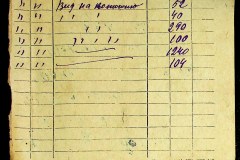 " " Вид на 52
" " " " 40
" " " " 290
" " " " " 100
" " 1240
" " 104